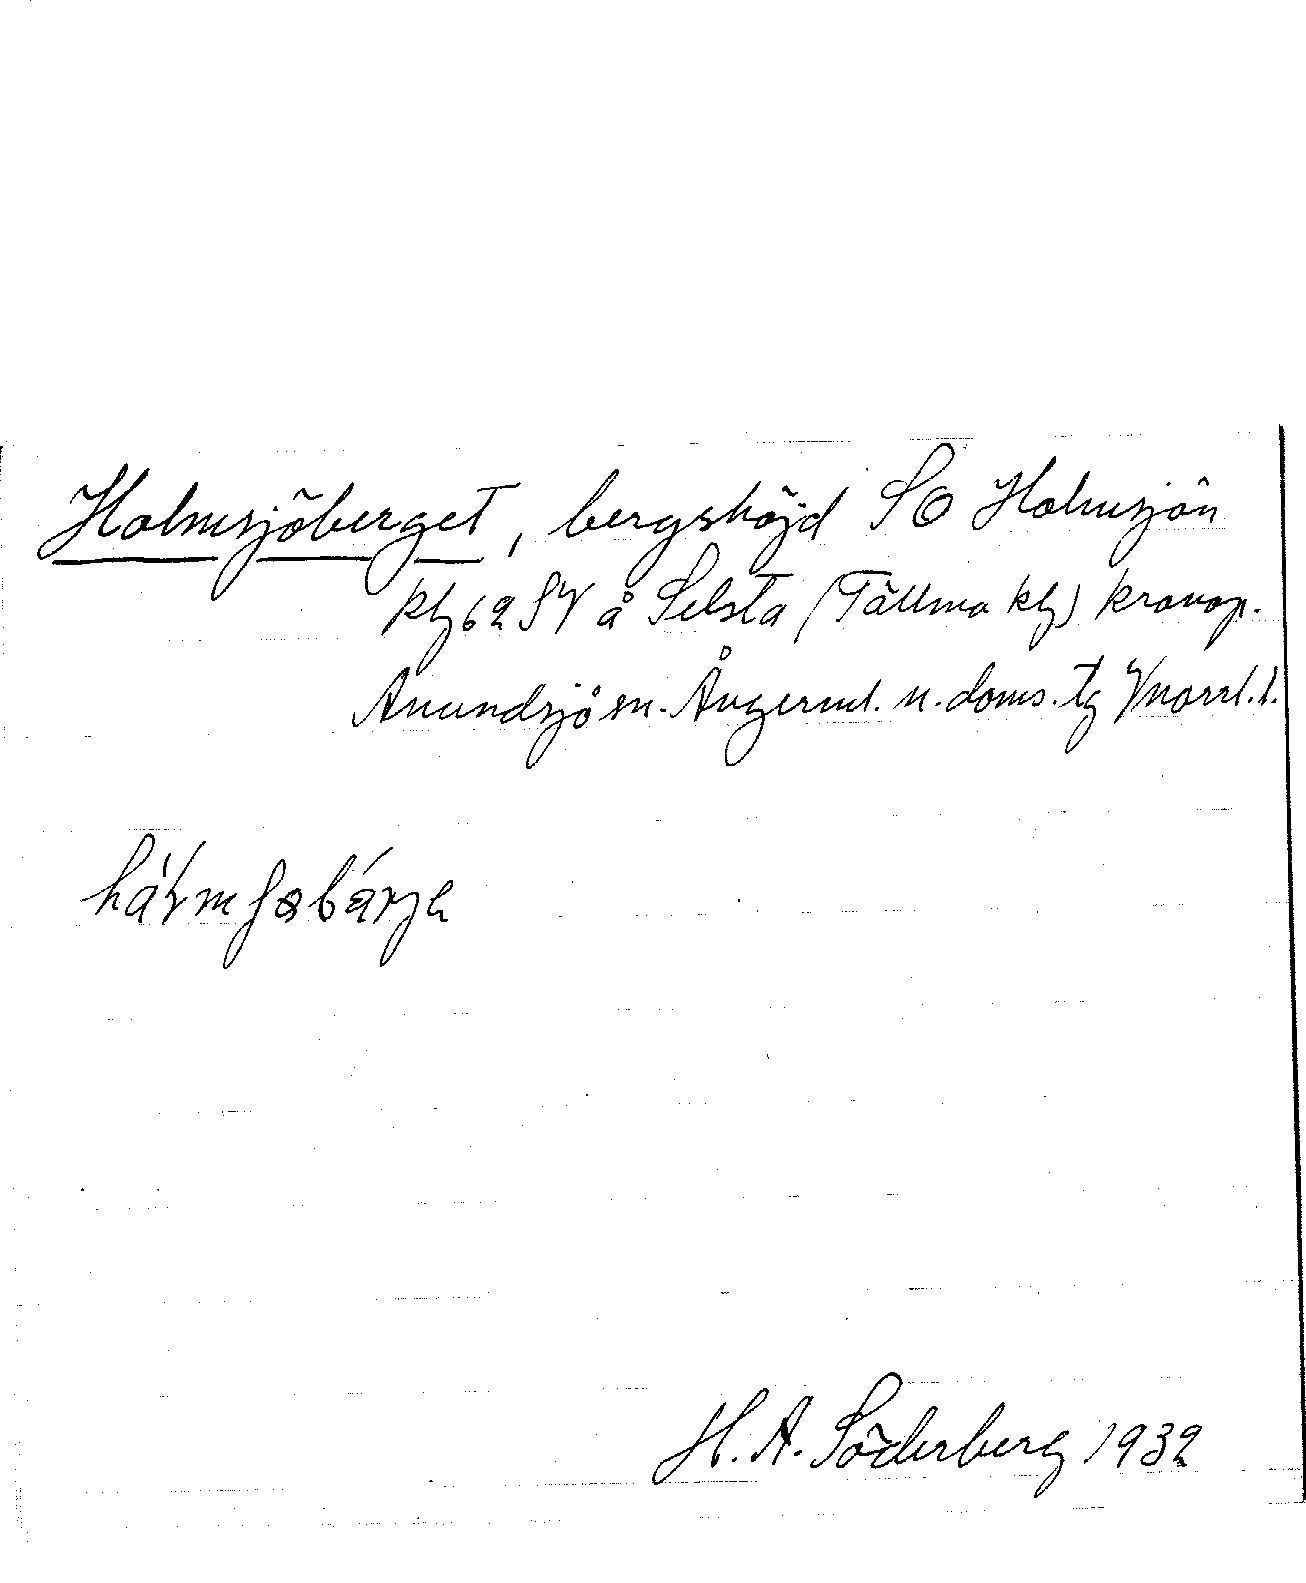 Holmsjöberget, bergshöjd SO Holmsjön
kbg 62 SV å Selsta (Tällmo kbg) kronop.
Anundsjö sn. Ångerml. n. doms. tg Vnorrl. l.
H. A. Söderberg 1932